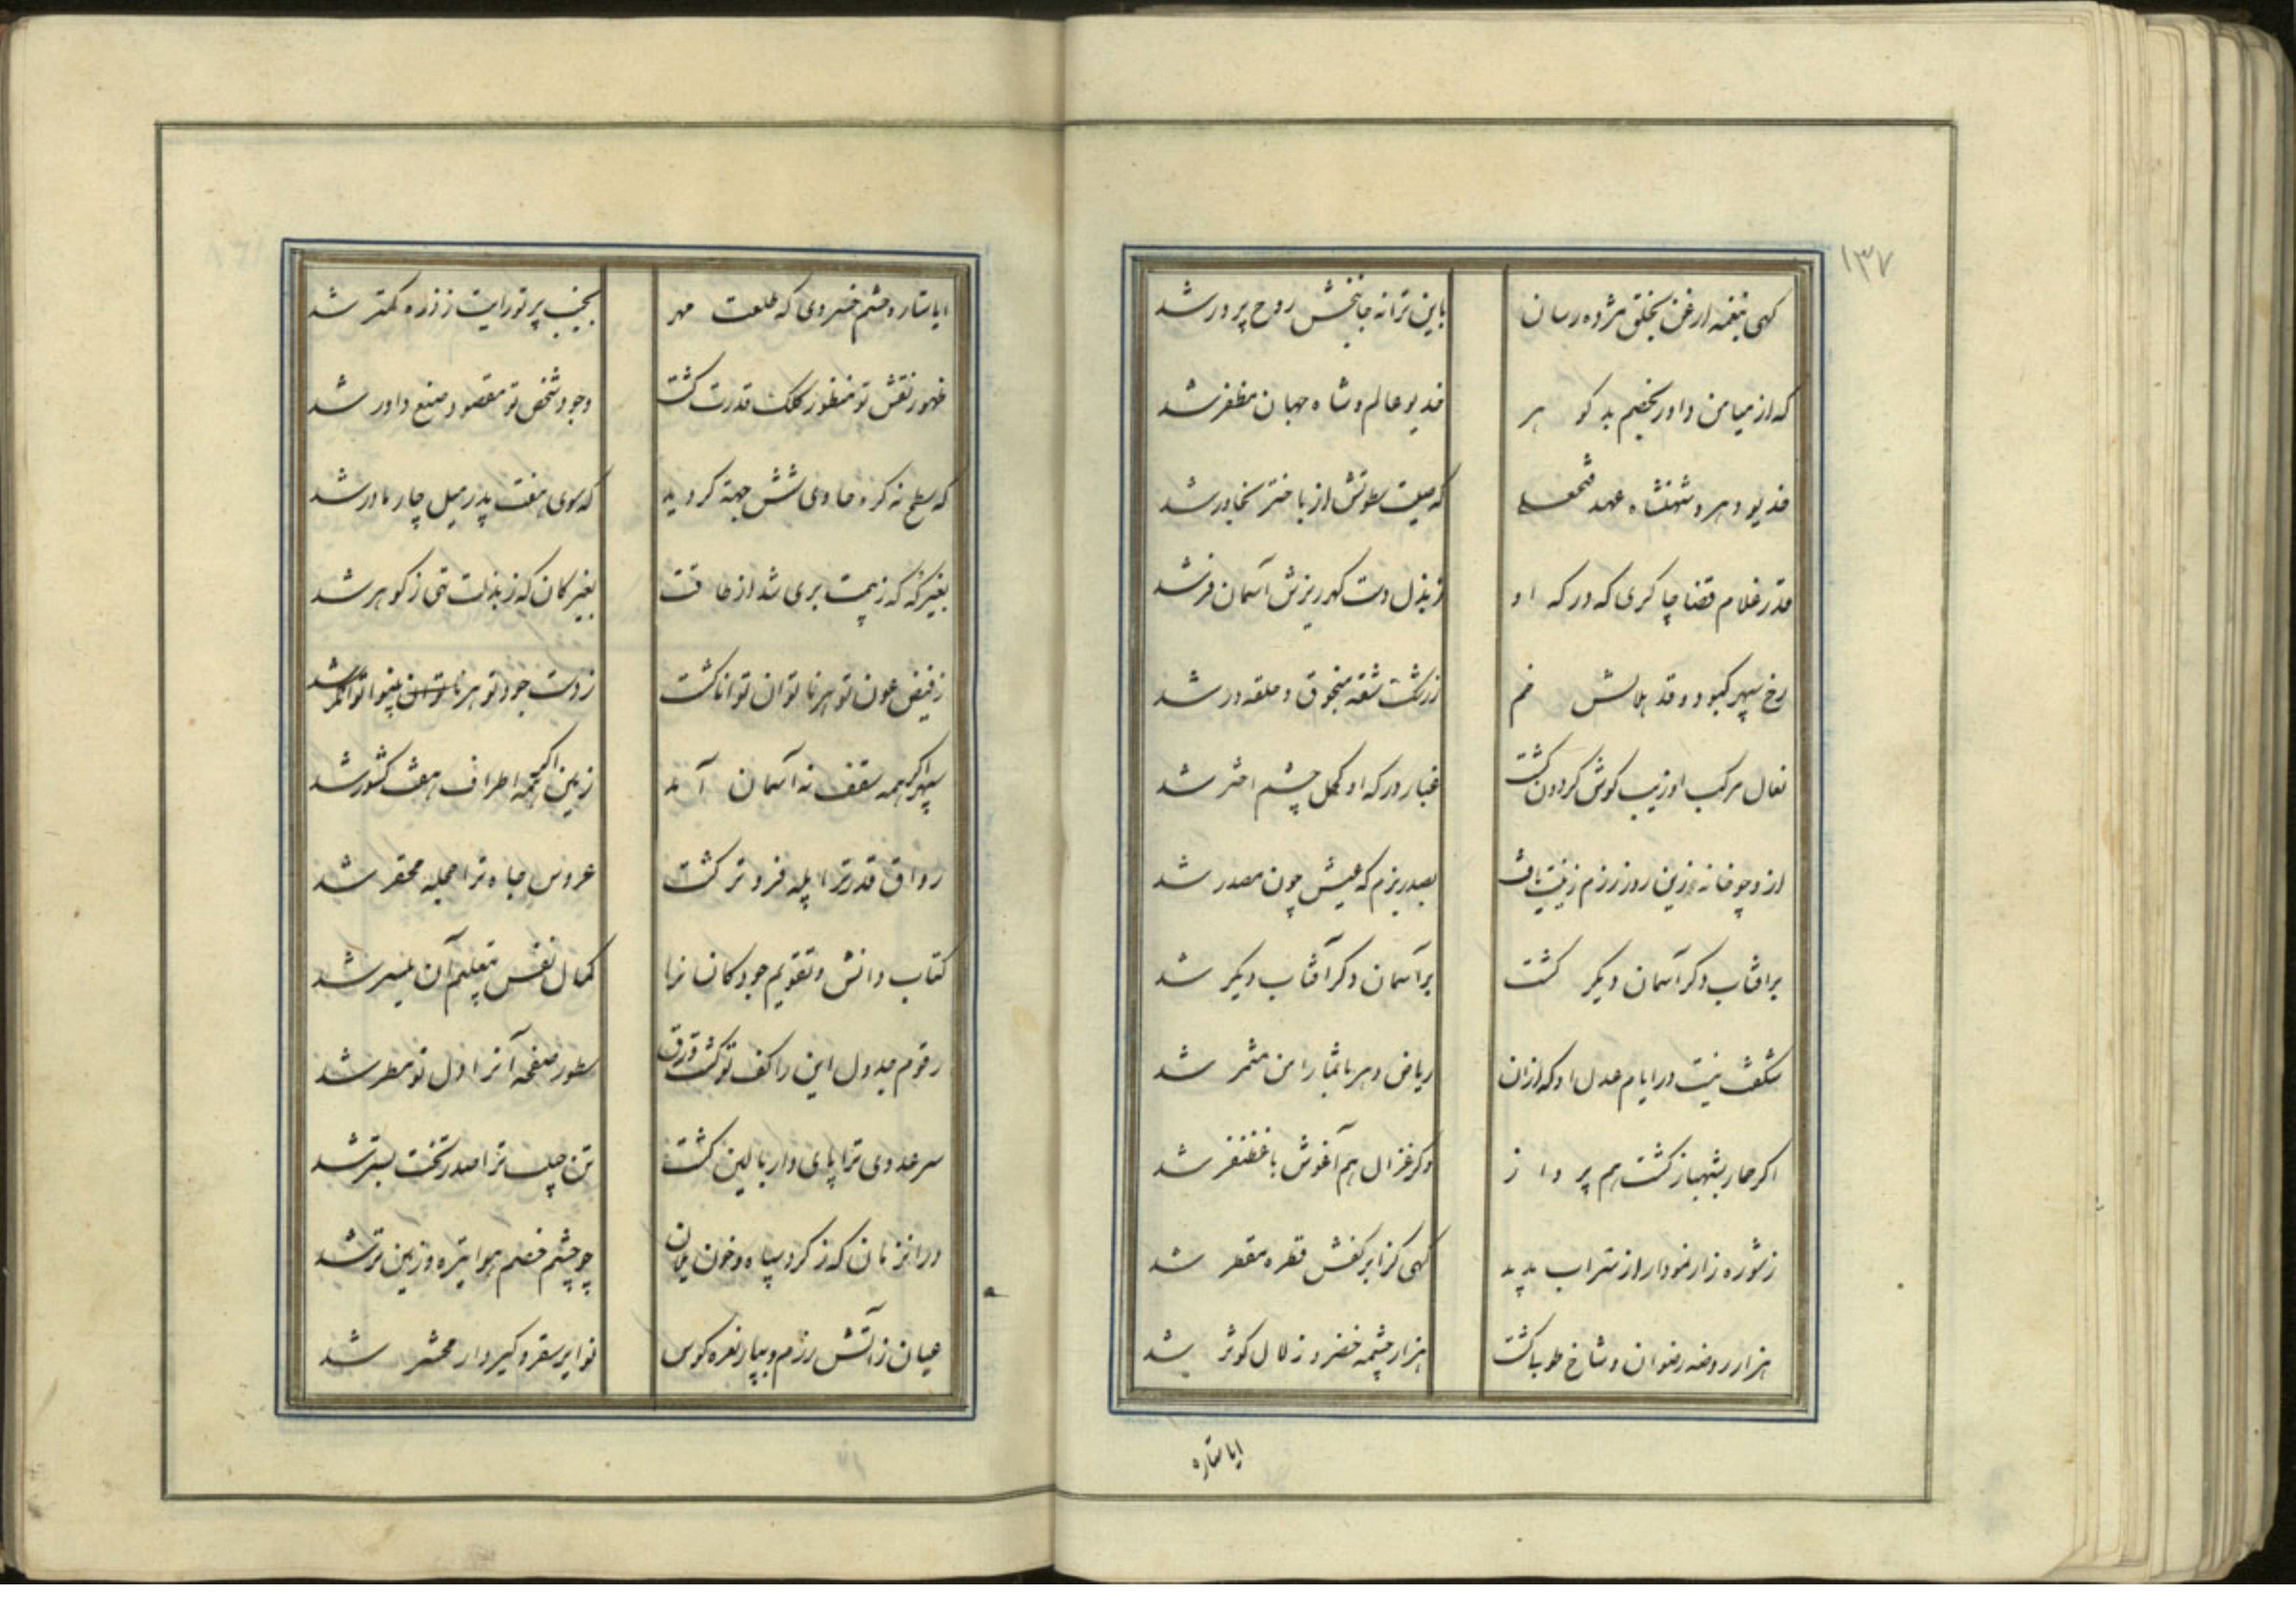 ۱۳۷
کهی بنغمه ارغن بخلق مژده رسان باین ترانه جانبخش روح پرور شد
که از میامن داور بخصم بد کو هر خدیو عالم و شاه جهان مظفر شد
خدیو دهر و شهنشاه عهد فتحعلی که صیت سطوتش از باختر بخاور شد
قدر غلام قضا چاکری که درکه او ز بذل دست کهرریزش آسمان فر شد
رخ سپهر کبود و قد هلالش خم زرشک شقه منجوق و حلقه در شد
نعال مرکب او زیب کوش کردون کشت غبار درکه او کحل چشم اختر شد
ازو چو خانه زین روز رزم زینت یافت بصدر بزم که عیش چون مصدر شد
بر افتاب دکر آسمان دیکر کشت بر آسمان دکر آفتاب دیکر شد
شکفت نیست در ایام عدل او که ازان ریاض دهر باثمار امن مثمر شد
اکر بشهباز کشت هم پر وا ز وکر غزال هم آغوش با غضنفر شد
ز شوره زار نمودار از تراب پدید کهی کز ابر کفش قطره مقطر شد
هزار روضه رضوان و شاخ طوبا کشت هزار چشمه خضر و زلال کوثر شد
ایا ستاره
ایا ستاره حشم خسروی که طلعت مهر بجنب پرتو رایت ز ذره کمتر شد
ظهور نقش تو منظور کلک قدرت کشت وجود شخص تو مقصود صنع داور شد
که سطح نه کره حاوی شش جهة کردید که سوی هفت پدر میل چار مادر شد
بغیر که که ز بیمت بری شد از طاقت بغیر کان که ز بذلت تهی ز کوهر شد
ز فیض عون تو هر ناتوان توانا کشت ز دست جود تو هر بینوا توانکر شد
سپهر اکر همه سقف نه آسمان آمد زمین اکر همه اطراف هفت کشور شد
رواق قدر ترا پله فروتر کشت عروس جاه ترا حجله محقر شد
کتاب دانش و تقویم جود کانسانرا کمال نفس بتعلیم آن میسر شد
رقوم جدول این را کف تو کشت ورق سطور صفحه آنرا دل تو مسطر شد
سر عدوی ترا پای دار بالین کشت تن ترا صدر تخت بستر شد
در انزمان که ز کرد سپاه و خون یلان چو چشم خصم هوا تیره و زمین تر شد
عیان ز آتش رزم و نعره کوس نوایر سقر و کیر و دار محشر شد